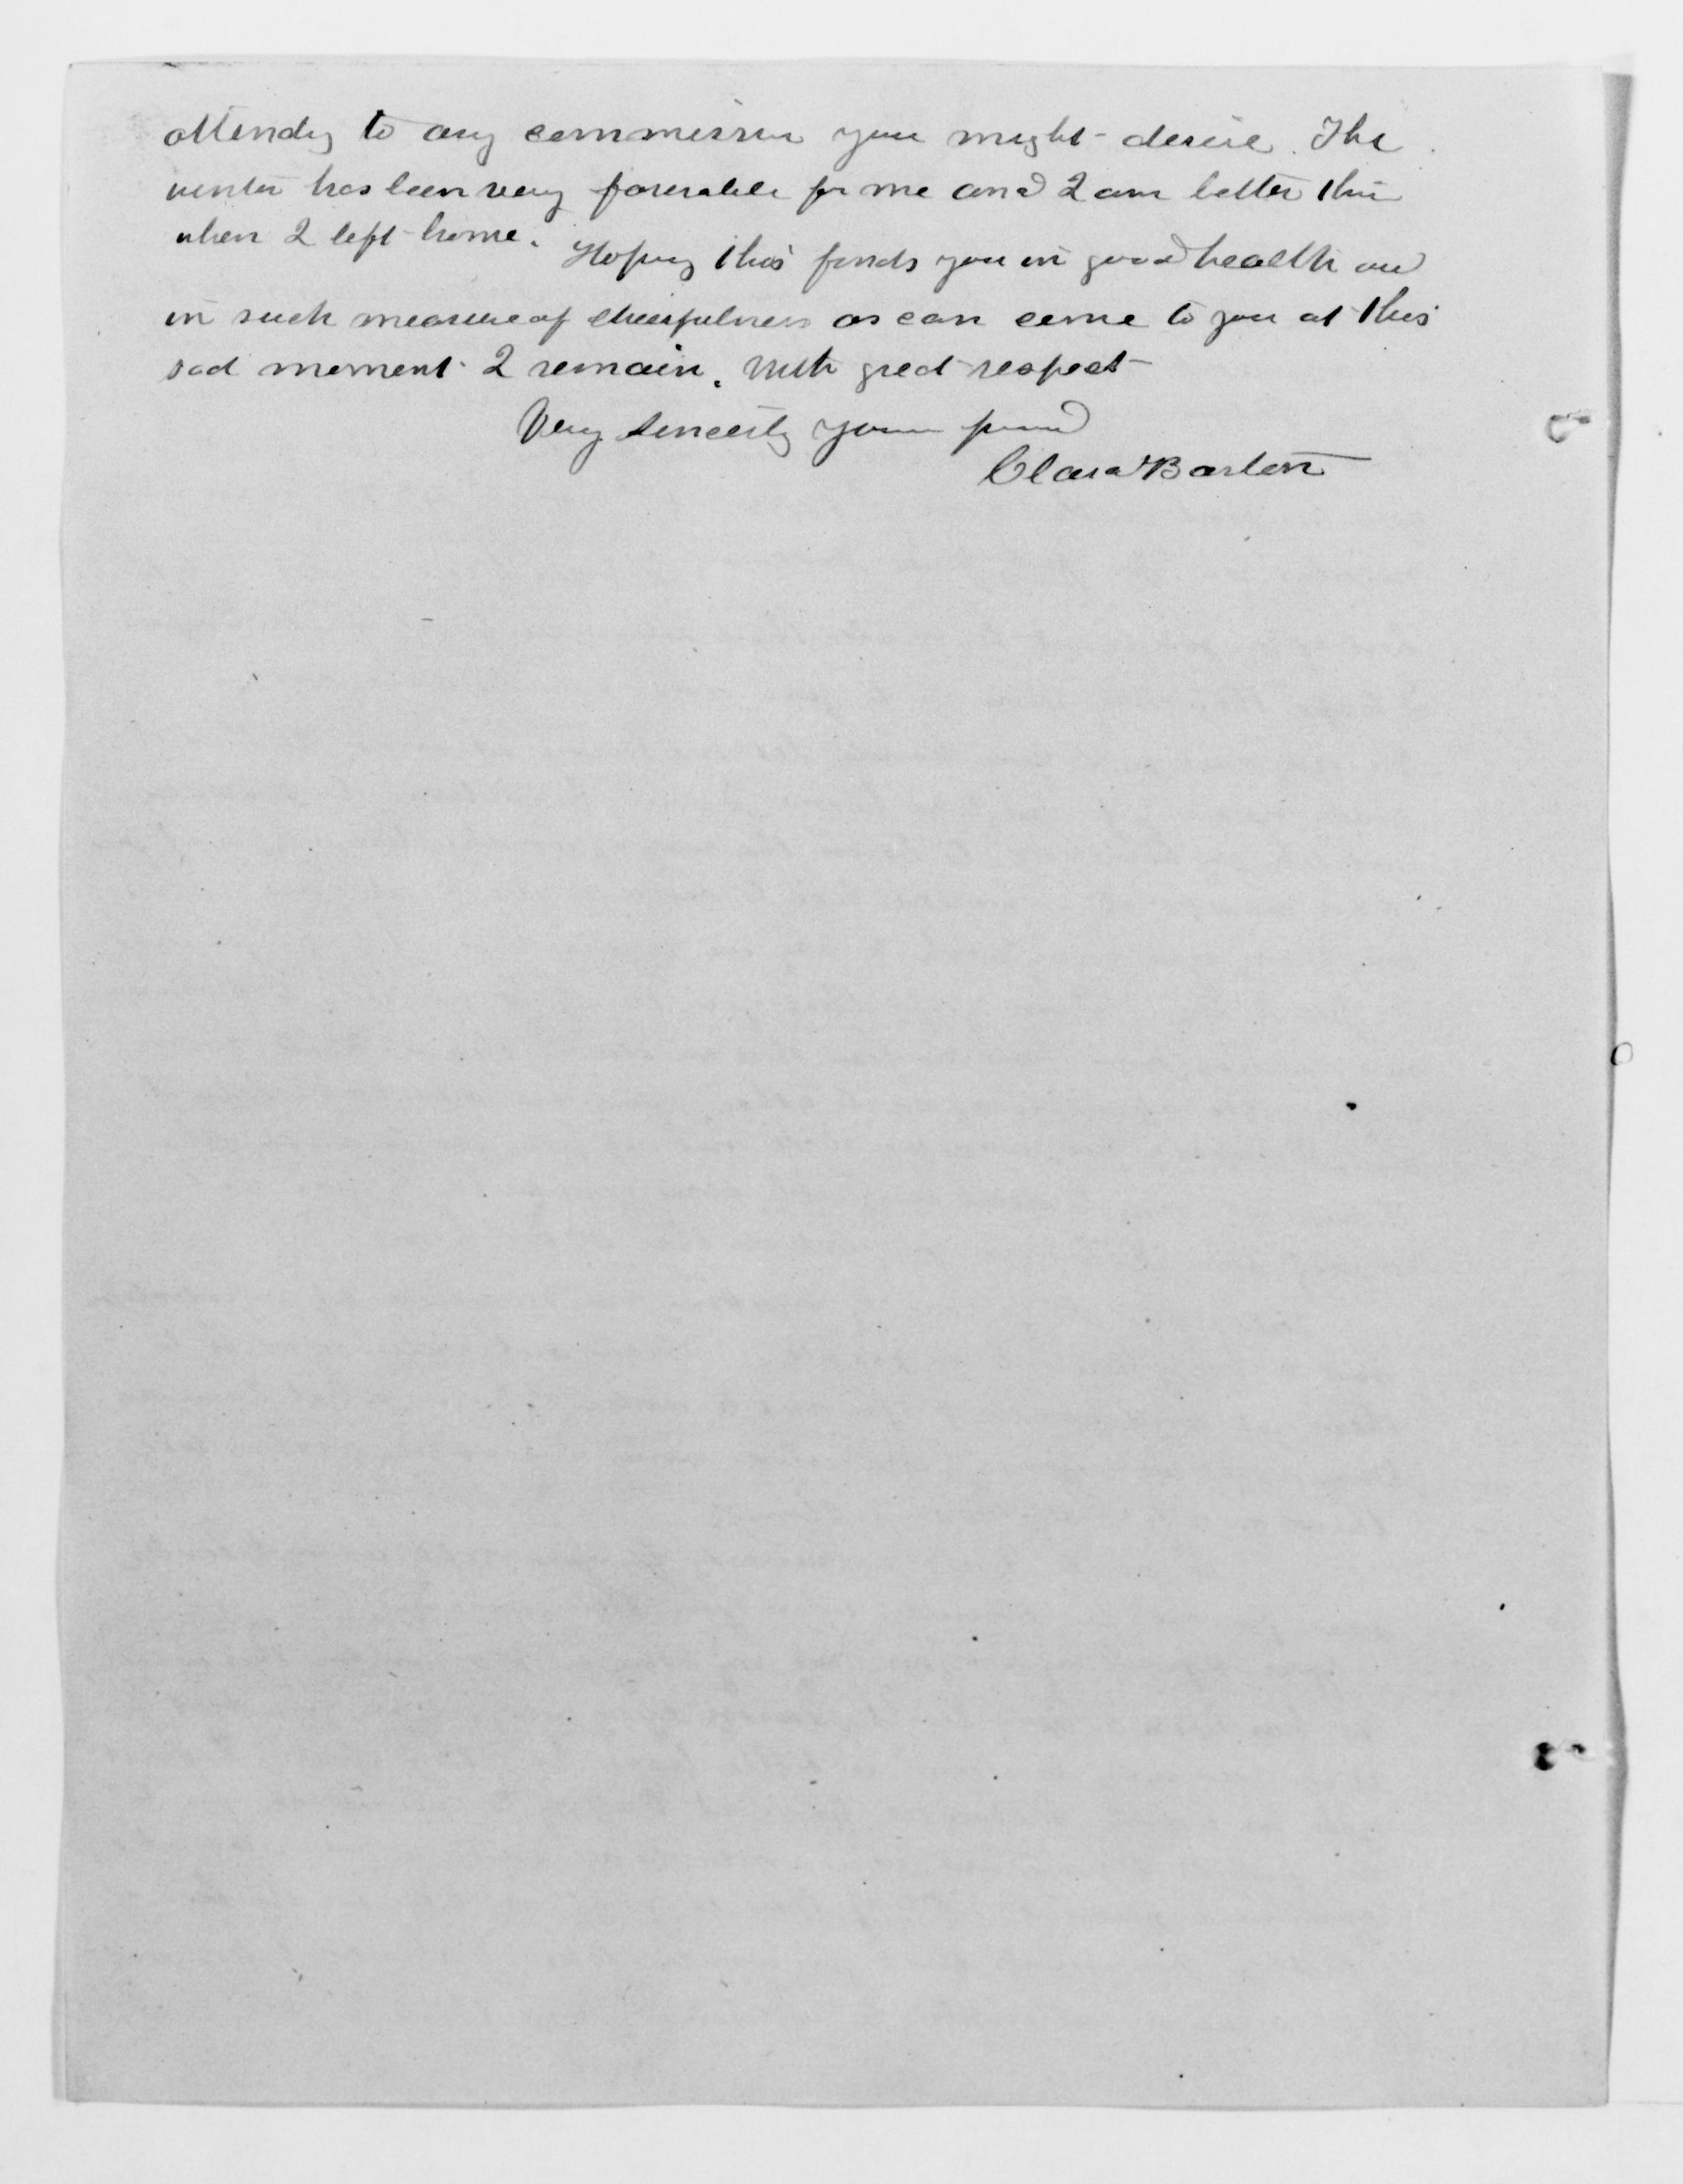 attending to any commission you might desire. The
winter has been very favorable for me and I am better than
when I left home. Hoping this finds you in good health and
in such measure of cheerfulness as can come to you at this
sad moment I remain. With great respect
Very sincerely your friend
Clara Barton